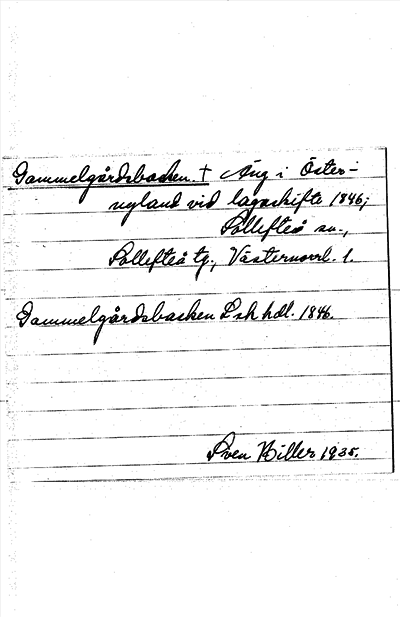 Gammelgårdsbacken † Äng i Öster-
nyland vid lagaskifte 1846;
Sollefteå sn.,
Sollefteå tg., Västernorrl. l.
Gammelgårdsbacken Lsk hdl. 1846.
Sven Biller 1935.